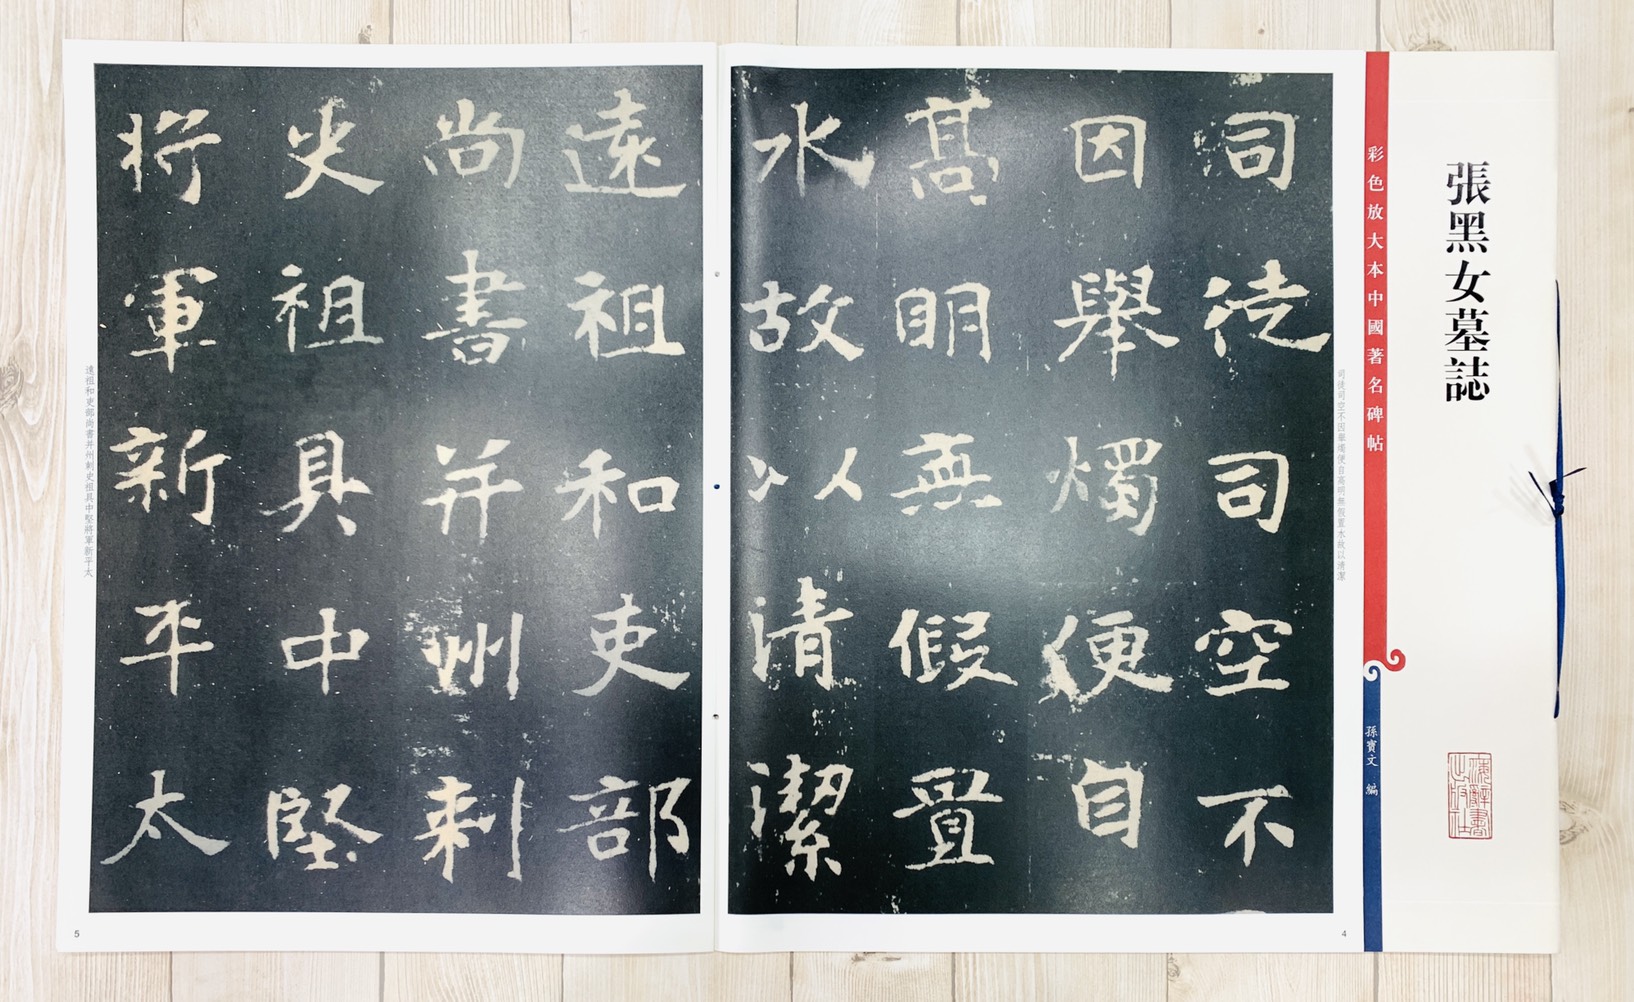 張黑女墓誌
彩色放大本中國著名碑帖
孫寶文 編
上海辭書出版社
司徒司空不因舉燭便自高明無假置水故以清潔
司徒司空不
因舉燭便自
高明無假置
水故以清潔
4
遠祖和吏部
尚書并州刺
史祖具中堅
將軍新平太
遠祖和吏部尚書并州刺史祖具中堅將軍新平太
5